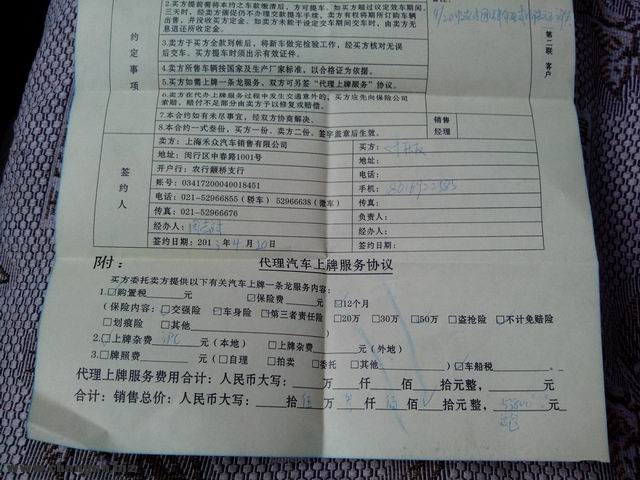 2.买方提车前需将本约之车款缴清后,方可提车,如买方超过以定效车期间
三天时,经卖方催促仍不办理交款提车手续,卖方有权将期所订购车辆
出售,并没收买方定金。如卖方未能于设定交车期间交车时,由卖方无
息退还所收定金。
3.卖方于买方全款到帐后,将新车做完检验工作,经买方核对无误
后交车。买方提车时须出示有效证件。
4.卖方所售车辆按国家及生产厂家标准,以合格证为依据。
5.买方如需上牌一条龙服务,双方可另签“代理上牌服务”协议。
6.卖方在代办上牌服务过程中发生交通意外的,买方应先向保险公司
索赔,赔付不足部分由卖方予以修复或赔偿。
7.本合约如有未尽事宜,经双方协商解决。
8.本合约一式叁份,买方一份、卖方二份,签字盖章后生效。
约定事项
销售
经理
第二联 客户
签约人
卖方:上海禾众汽车销售有限公司
地址:闵行区中春路1001号
开户行:农行颛桥支行
账号:03417200040018451
电话:021-52966855(轿车) 52966638(微车)
传真:021-52966676
经办人:
签约日期:2013年4月20日
买方:
地址:
电话:
手机:
传真:
负责人:
经办人:
签约日期:
附: 代理汽车上牌服务协议
买方委托卖方提供以下有关汽车上牌一条龙服务内容:
1.☑购置税 元 ☑保险费 元 ☑12个月
(保险内容:☑交强险 ☑车身险 ☑第三者责任险 □20万 □30万 □50万 □盗抢险 □不计免赔险
□划痕险 □其他 )
2.☑上牌杂费 元(本地) □上牌杂费 元(外地)
3.□牌照费 元(□自理 □拍卖 □委托 □其他 )☑车船税 。
代理上牌服务费用合计:人民币大写: 万 仟 佰 拾元整, 元
合计:销售总价:人民币大写: 拾伍万 仟伍佰 拾元整, 元